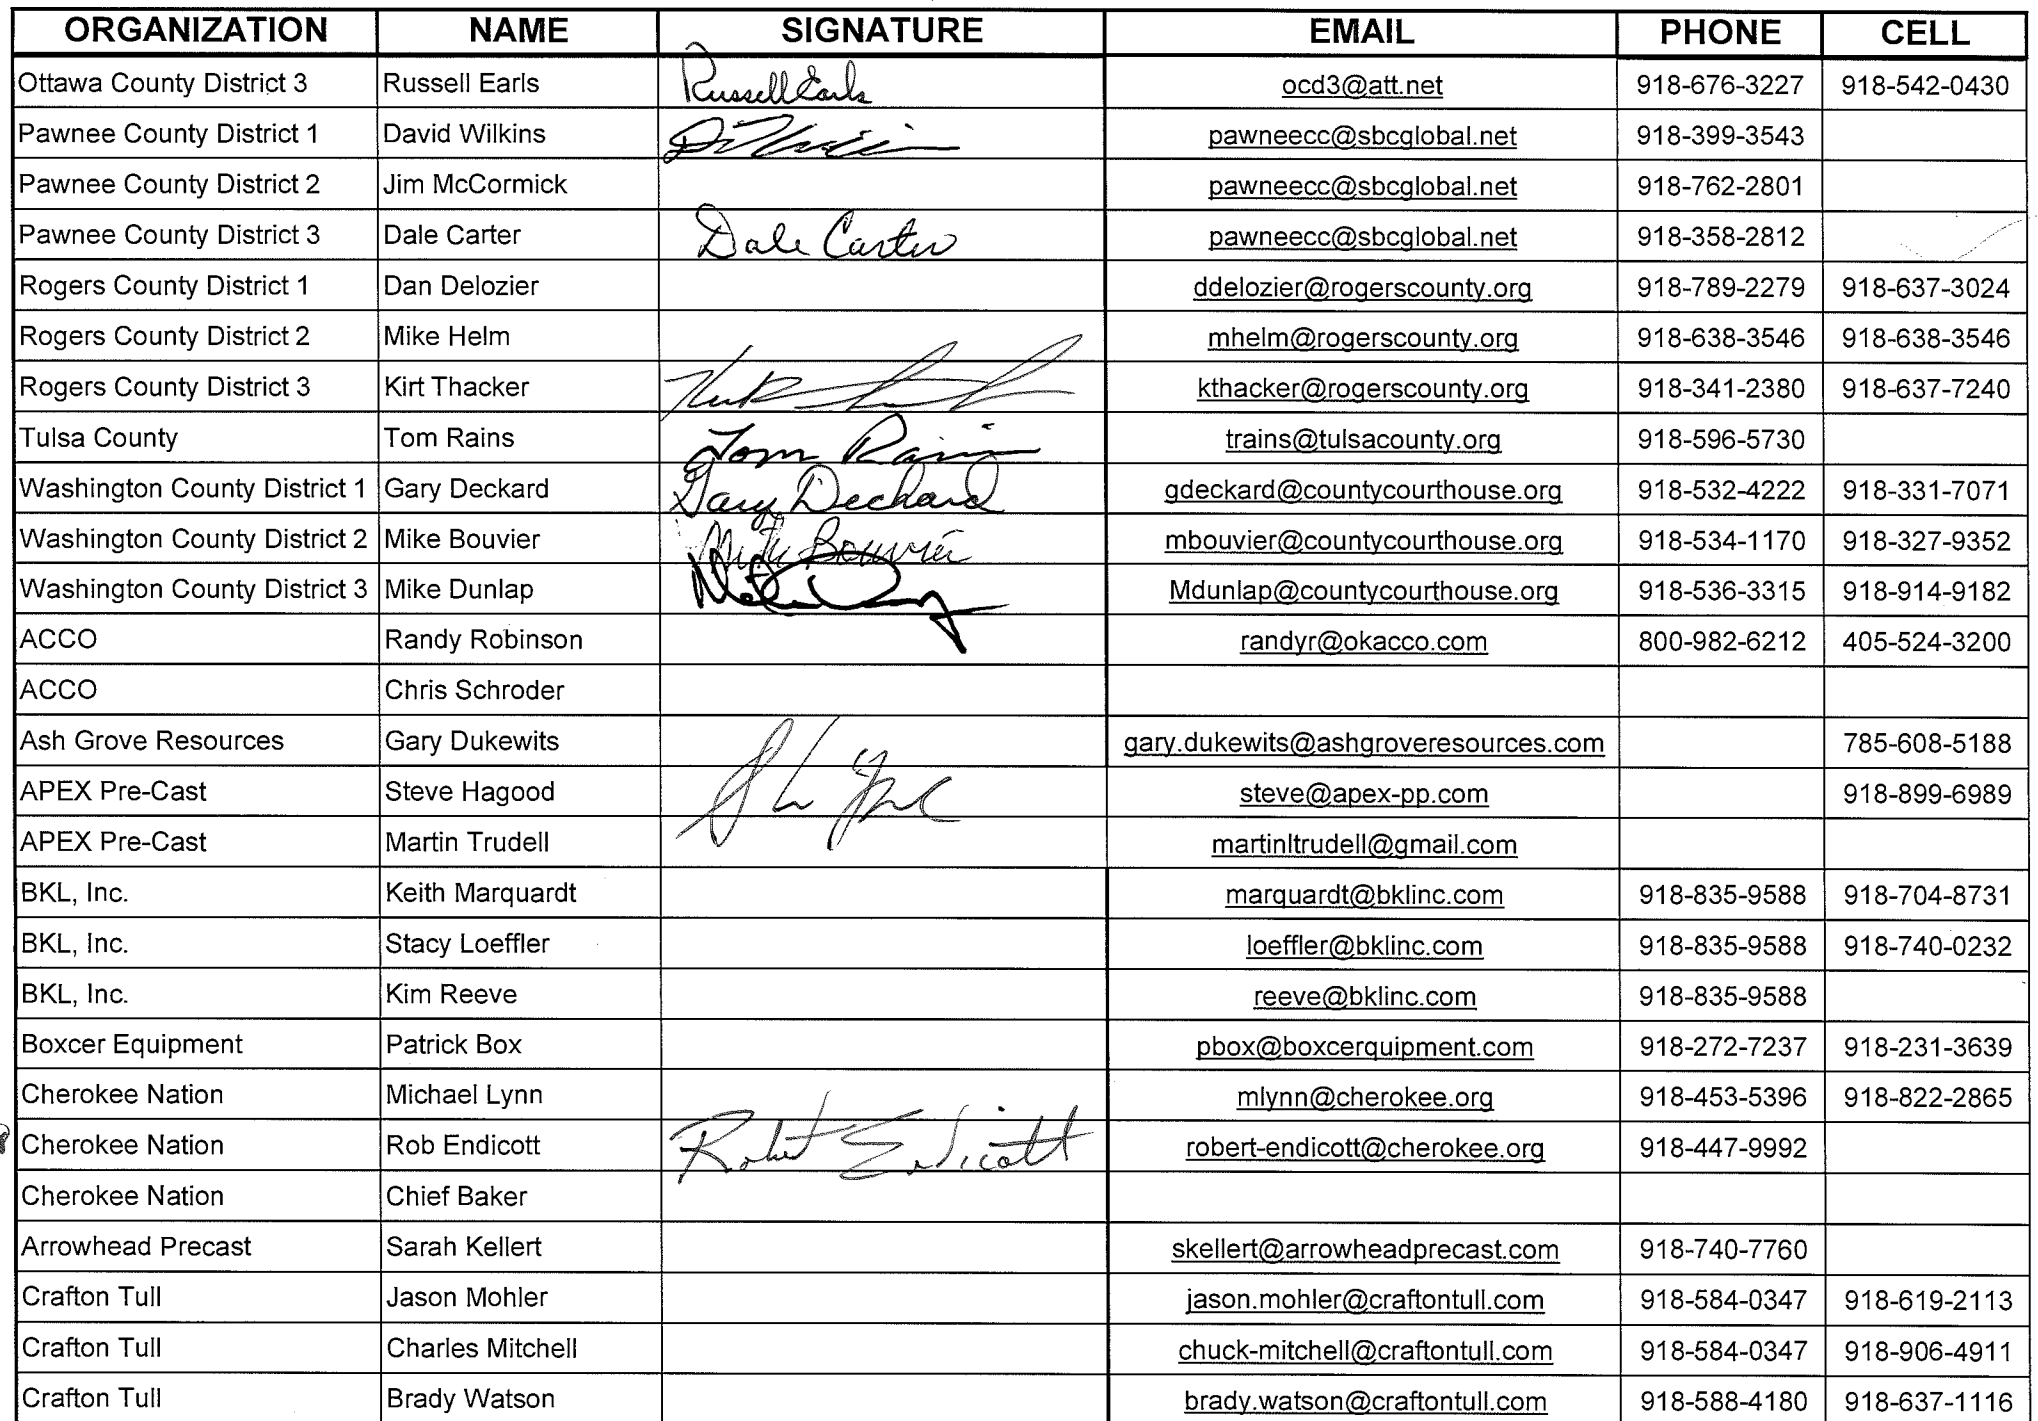 ORGANIZATION NAME SIGNATURE EMAIL PHONE CELL
Ottawa County District 3 Russell Earls Russell Earls ocd3@att.net 918-676-3227 918-542-0430
Pawnee County District 1 David Wilkins pawneecc@sbcglobal.net 918-399-3543
Pawnee County District 2 Jim McCormick pawneecc@sbcglobal.net 918-762-2801
Pawnee County District 3 Dale Carter Dale Carter pawneecc@sbcglobal.net 918-358-2812
Rogers County District 1 Dan Delozier ddelozier@rogerscounty.org 918-789-2279 918-637-3024
Rogers County District 2 Mike Helm mhelm@rogerscounty.org 918-638-3546 918-638-3546
Rogers County District 3 Kirt Thacker kthacker@rogerscounty.org 918-341-2380 918-637-7240
Tulsa County Tom Rains Tom Rains trains@tulsacounty.org 918-596-5730
Washington County District 1 Gary Deckard Gary Deckard gdeckard@countycourthouse.org 918-532-4222 918-331-7071
Washington County District 2 Mike Bouvier Mike Bouvier mbouvier@countycourthouse.org 918-534-1170 918-327-9352
Washington County District 3 Mike Dunlap Mdunlap@countycourthouse.org 918-536-3315 918-914-9182
ACCO Randy Robinson randyr@okacco.com 800-982-6212 405-524-3200
ACCO Chris Schroder
Ash Grove Resources Gary Dukewits gary.dukewits@ashgroveresources.com 785-608-5188
APEX Pre-Cast Steve Hagood steve@apex-pp.com 918-899-6989
APEX Pre-Cast Martin Trudell martinltrudell@gmail.com
BKL, Inc. Keith Marquardt marquardt@bklinc.com 918-835-9588 918-704-8731
BKL, Inc. Stacy Loeffler loeffler@bklinc.com 918-835-9588 918-740-0232
BKL, Inc. Kim Reeve reeve@bklinc.com 918-835-9588
Boxcer Equipment Patrick Box pbox@boxcerquipment.com 918-272-7237 918-231-3639
Cherokee Nation Michael Lynn mlynn@cherokee.org 918-453-5396 918-822-2865
Cherokee Nation Rob Endicott Robert Endicott robert-endicott@cherokee.org 918-447-9992
Cherokee Nation Chief Baker
Arrowhead Precast Sarah Kellert skellert@arrowheadprecast.com 918-740-7760
Crafton Tull Jason Mohler jason.mohler@craftontull.com 918-584-0347 918-619-2113
Crafton Tull Charles Mitchell chuck-mitchell@craftontull.com 918-584-0347 918-906-4911
Crafton Tull Brady Watson brady.watson@craftontull.com 918-588-4180 918-637-1116